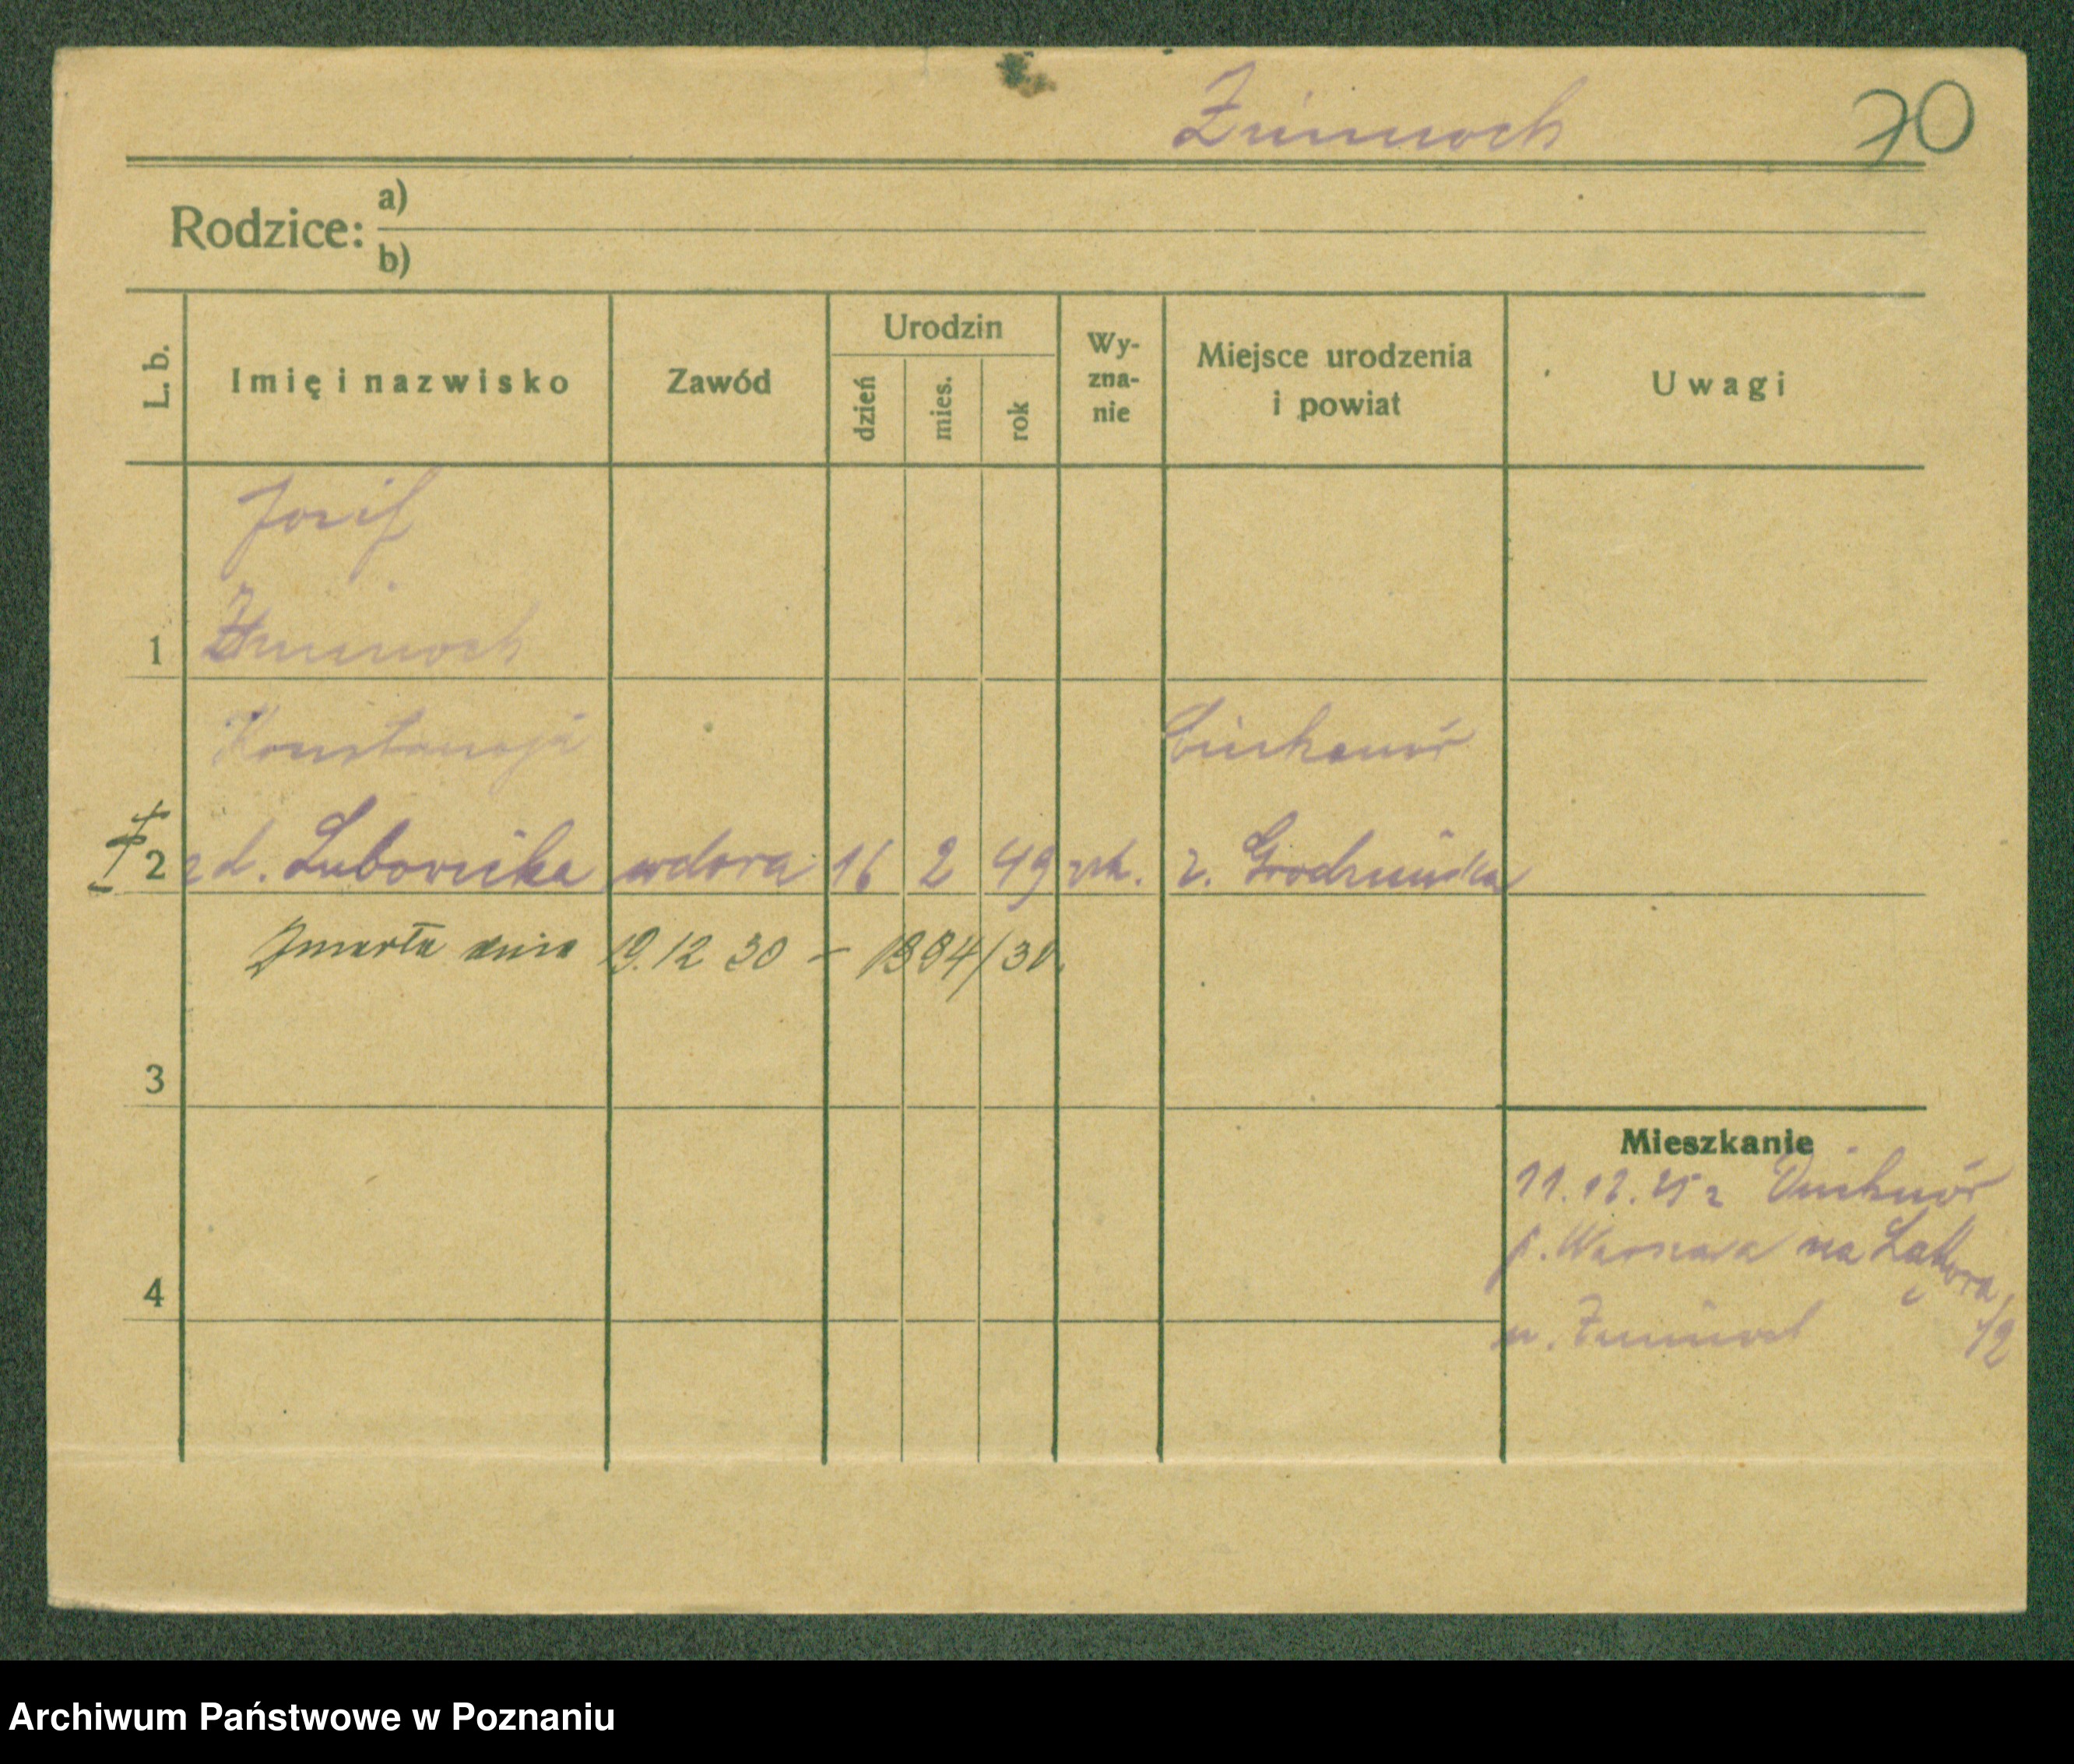 Zimnoch
70
Rodzice: a)
b)
L. b.
Imię i nazwisko
Zawód
Urodzin
dzień
mies.
rok
Wy-
zna-
nie
Miejsce urodzenia
i powiat
Uwagi
Józef
1 Zimnoch
Konstancja
2 zd. Lubowicka wdowa 16 2 49 rzk.
Ciechanów
z. Grodzieńska
Zmarła dnia 19.12 30 – 1884/30.
3
4
Mieszkanie
11.12.25 z
p. Warszawa na
u. Zimnoch
Archiwum Państwowe w Poznaniu